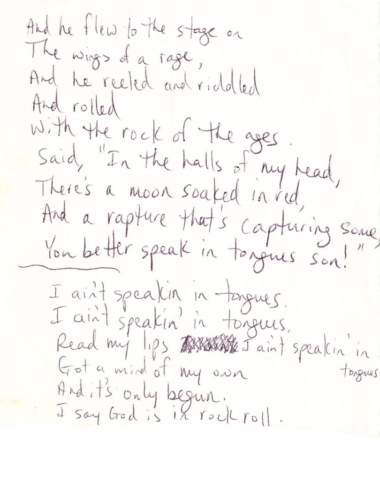 And he flew to the stage on
The wings of a rage,
And he reeled and riddled
And rolled
With the rock of the ages.
Said, "In the halls of my head,
There's a moon soaked in red,
And a rapture that's capturing some,
You better speak in tongues son!"
I ain't speakin in tongues.
I ain't speakin' in tongues.
Read my lips I ain't speakin' in
tongues
Got a mind of my own
And it's only begun.
I say God is in rock roll.